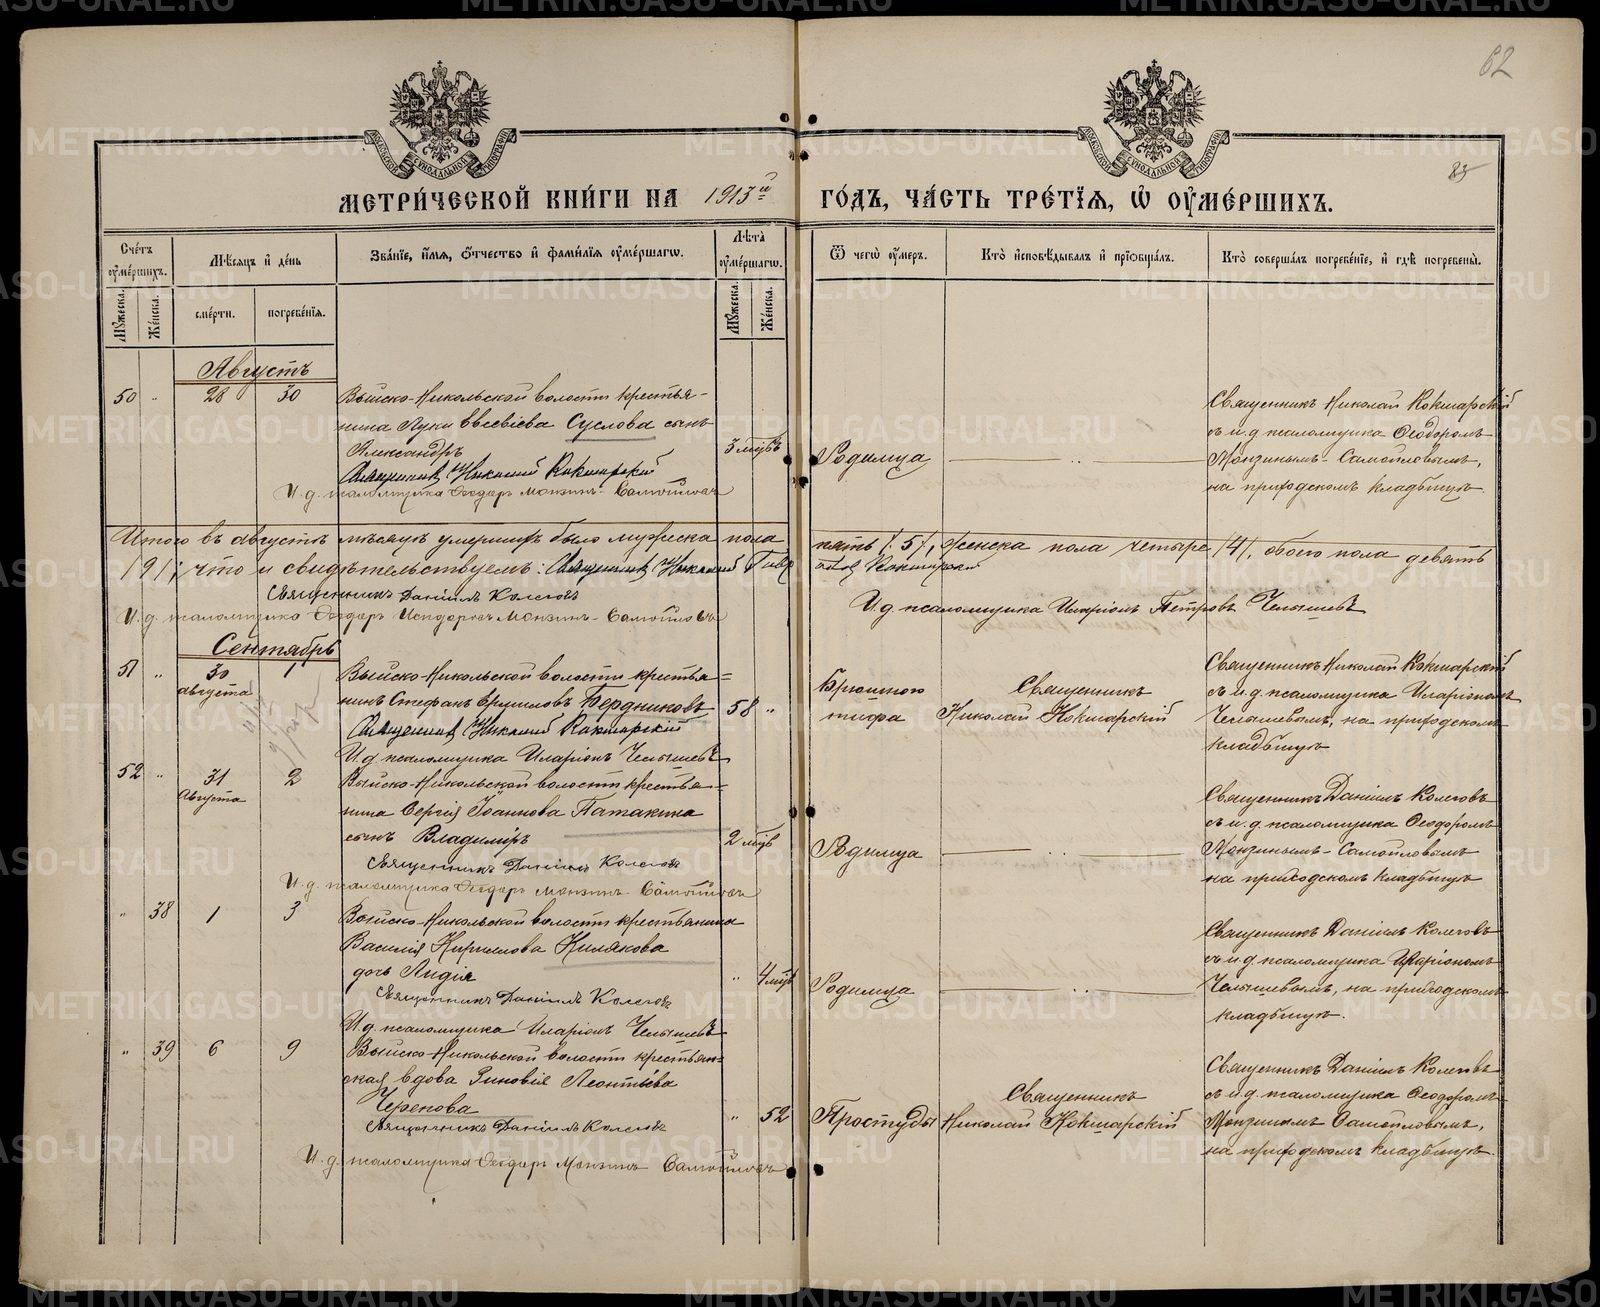 62
85
МЕТРИ́ЧЕСКОЙ КНИ́ГИ НА 1913й ГО́ДЪ, ЧА́СТЬ ТРЕ́ТЇѦ, Ѿ ОУМЕ́РШИХЪ.
Сче́тъ оумершихъ.
Мꙋ́жеска.
Же́нска.
Мѣ́сѧцъ и де́нь
сме́рти.
погребе́нїѧ.
Зва́нїе, и́мѧ, о́тчество и фами́лїѧ оуме́ршагѡ.
Лѣ́та оуме́ршагѡ.
Мꙋ́жеска.
Же́нска.
Ѿ чегѡ̀ оу́меръ.
Кто̀ исповѣ́дывалъ и прїѡбща́лъ.
Кто̀ соверша́лъ погребе́нїе, и гдѣ̀ погребены̀.
Августъ
50 " 28 30 Выйско-Никольской волости крестья-
нина Луки Евсевіева Суслова сынъ
Александръ
3 мѣс Родимца
Священникъ Николай Кокшарскій
И. д. псаломщика Ѳеодоръ Монзинъ-Самойловъ
Священникъ Николай Кокшарскій
съ и. д. псаломщика Ѳеодоромъ
Монзинымъ-Самойловымъ,
на приходскомъ кладбищѣ
Итого въ августѣ мѣсяцѣ умершихъ было мужеска пола пять /5/, женска пола четыре /4/, обоего пола девять
/9/, что и свидѣтельствуемъ: Священникъ Николай Кокшарскій
Священникъ Даніилъ Колеговъ
И. д. псаломщика Ѳеодоръ Исидоровъ Монзинъ-Самойловъ
И. д. псаломщика Иларіонъ Петровъ Челышевъ
Сентябрь
51 " 30 августа 1 Выйско-Никольской волости крестья=
нинъ Стефанъ Ермиловъ Бердниковъ
58 " Брюшного
тифа
Священникъ Николай Кокшарскій
И. д. псаломщика Иларіонъ Челышевъ
Священникъ
Николай Кокшарскій
Священникъ Николай Кокшарскій
съ и. д. псаломщика Иларіономъ
Челышевымъ, на приходскомъ
кладбищѣ
52 " 31 августа 2 Выйско-Никольской волости крестья=
нина Сергія Іоаннова Патакина
сынъ Владиміръ
2 мѣс Родимца
Священникъ Даніилъ Колеговъ
И. д. псаломщика Ѳеодоръ Монзинъ-Самойловъ
Священникъ Даніилъ Колеговъ
съ и. д. псаломщика Ѳеодоромъ
Монзинымъ-Самойловымъ
на приходскомъ кладбищѣ
" 38 1 3 Выйско-Никольской волости крестьянина
Василія Кириллова Килякова
дочь Лидія
" 4 мѣс Родимца
Священникъ Даніилъ Колеговъ
И. д. псаломщика Иларіонъ Челышевъ
Священникъ Даніилъ Колеговъ
съ и. д. псаломщика Иларіономъ
Челышевымъ, на приходскомъ
кладбищѣ.
" 39 6 9 Выйско-Никольской волости крестьян=
ская вдова Зиновія Леонтьева
Черепова
" 52 Простуды
Священникъ Даніилъ Колеговъ
И. д. псаломщика Ѳеодоръ Монзинъ Самойловъ
Священникъ
Николай Кокшарскій
Священникъ Даніилъ Колеговъ
съ и. д. псаломщика Ѳеодоромъ
Монзинымъ Самойловымъ,
на приходскомъ кладбищѣ.
METRIKI.GASO-URAL.RU